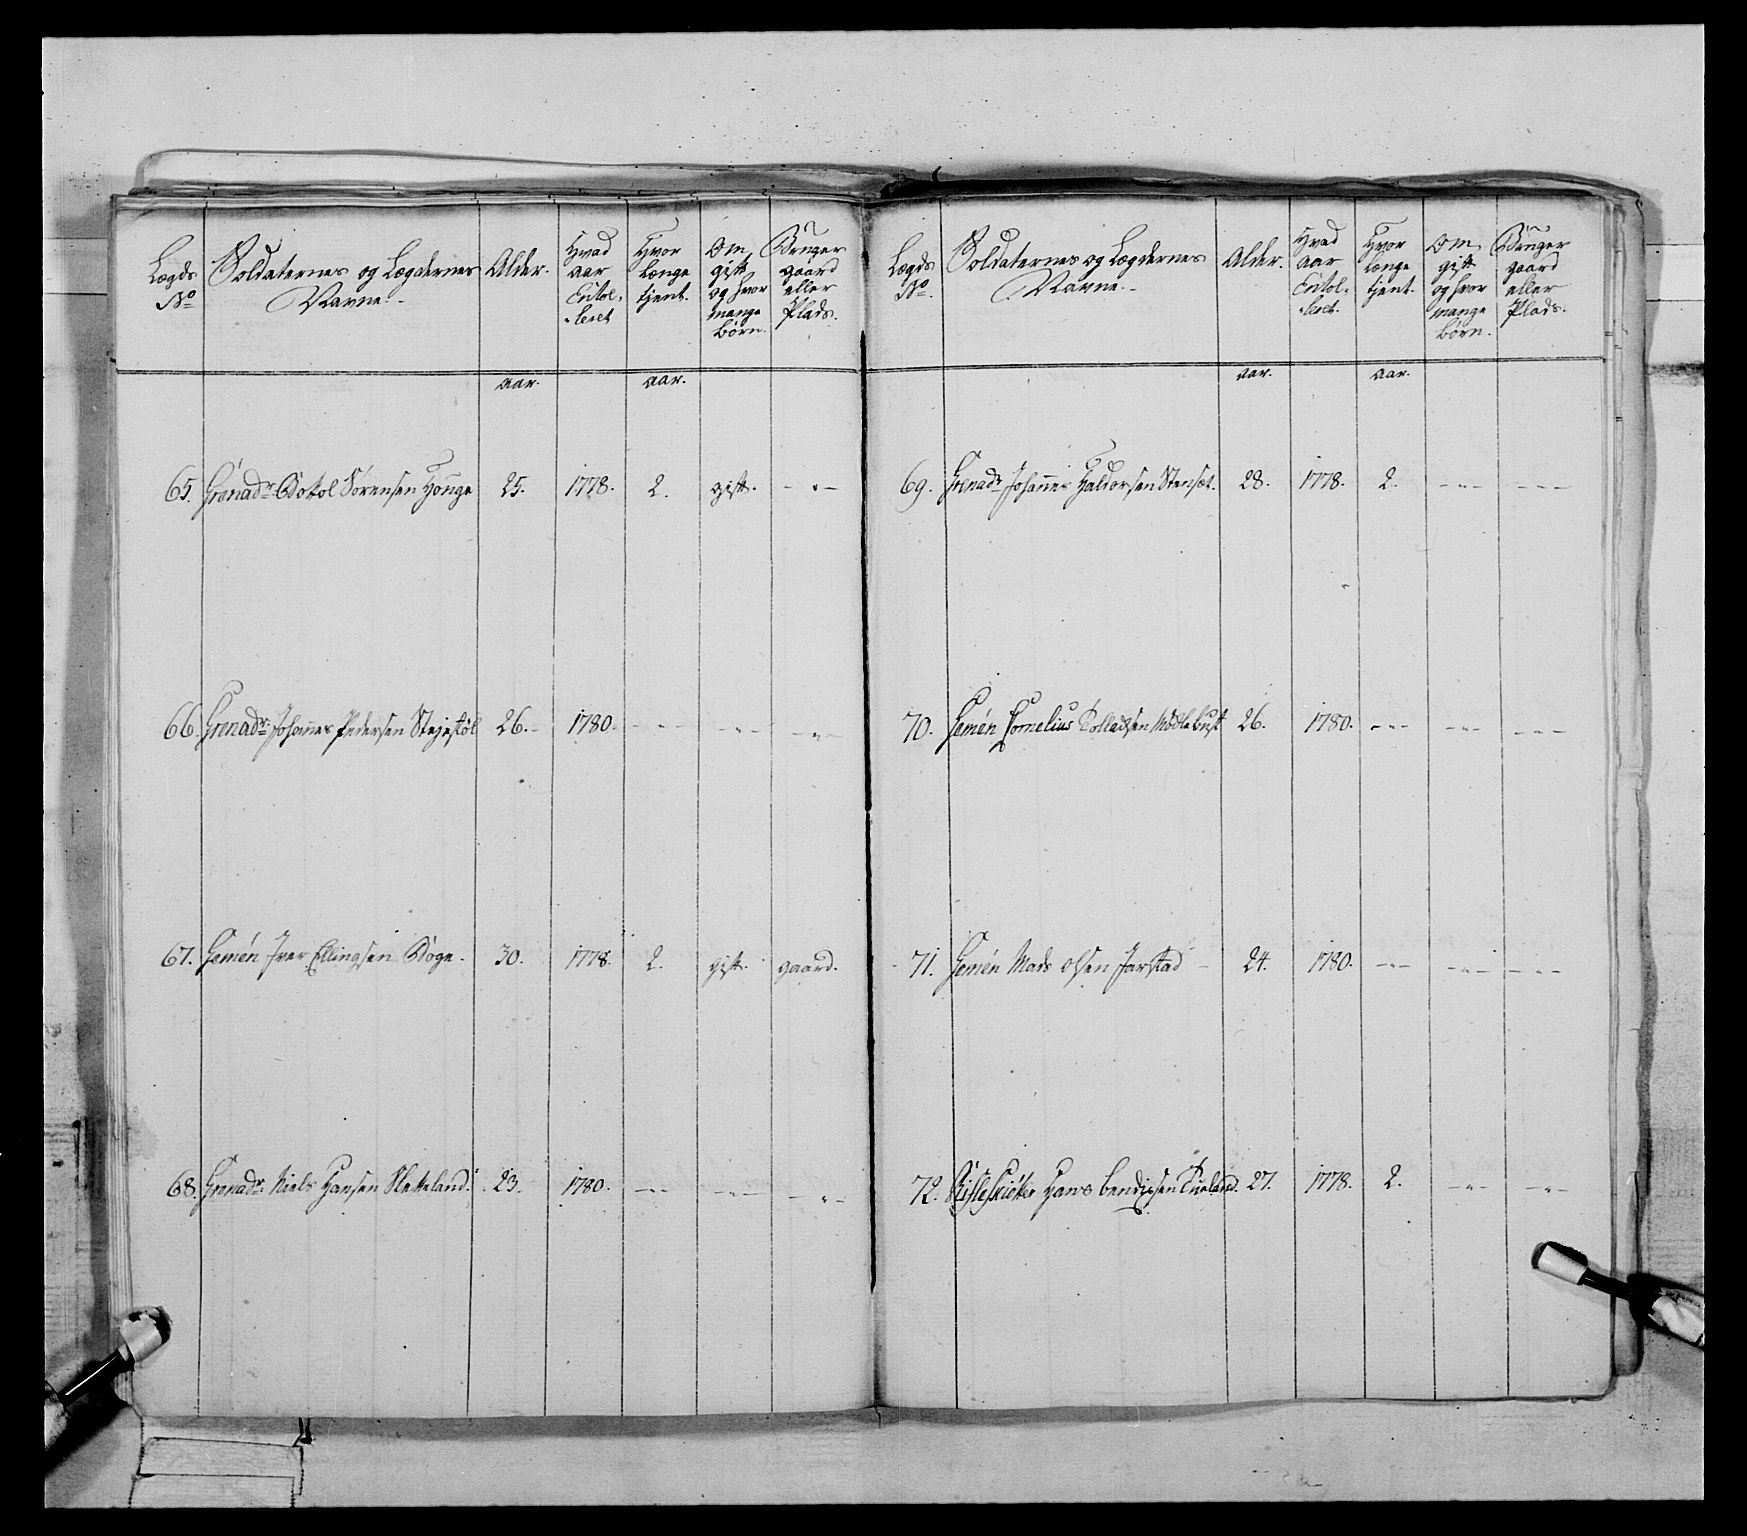 Lægds No | Soldaternes og Lægdernes Navne. | Alder. | Hvad aar Enrolleret | Hvor Længe tjent. | Om gift og hvor mange børn. | Bruger gaard eller Plads.
aar. | aar.
65. Grenadr. Botol Sørensen Honge 25. 1778. 2. gift. - - -
66. Grenadr. Johannes Pedersen 26. 1780. - - - - - - - - -
67. Gemén Iver Ellingsen Bøge. 30. 1778. 2. gift. gaard.
68. Grenadr. Niels Hansen Sletteland. 23. 1780. - - - - - - - - -
Lægds No. | Soldaternes og Lægdernes Navne. | Alder. | Hvad aar Enrolleret. | Hvor Længe tjent. | Om gift og hvor mange børn. | Bruger gaard eller Plads.
aar. | aar.
69. Grenadr. Johannes Haldorsen Stenset. 28. 1778. 2. - - - - - -
70. Gemén Cornelius 26. 1780. - - - - - - - - -
71. Gemén Mads Olsen Jarstad - 24. 1780. - - - - - - - - -
72. Hans Bendixsen 27. 1778. 2. - - - - - -